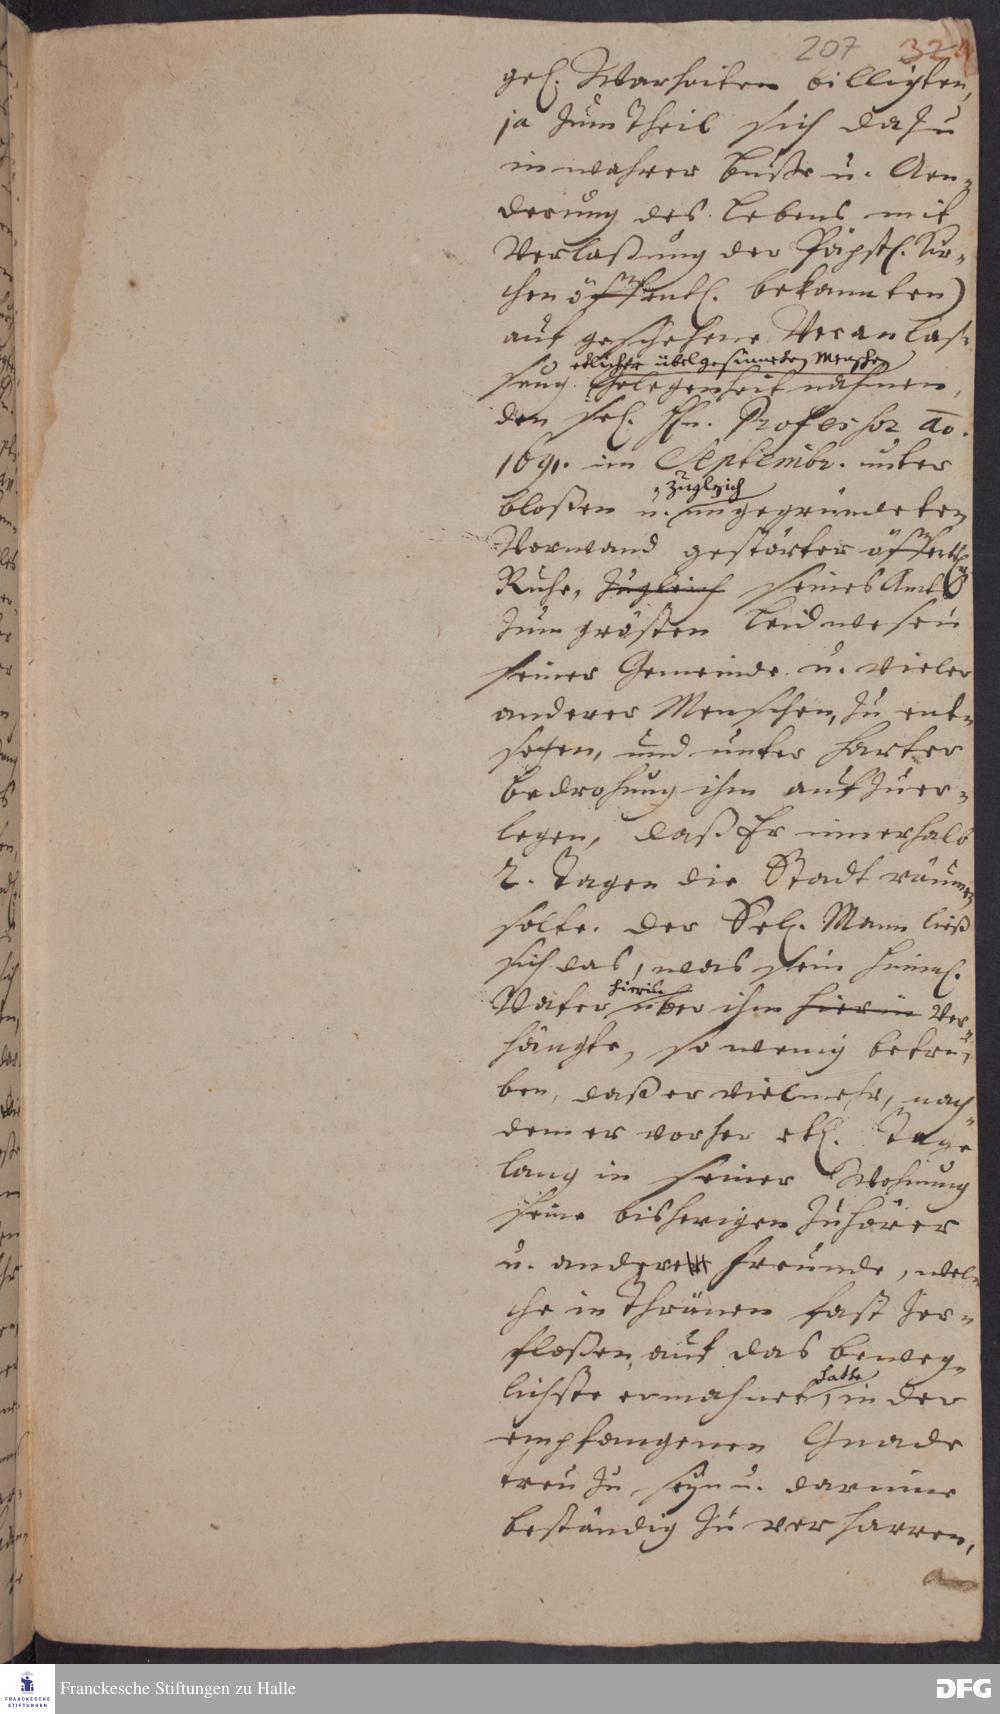 207 324
gel. Warheiten billigten,
ja zum Theil sich dazu
in wahrer buße u. Aen-
derung des Lebens mit
Verlaßung der Päpstl. Kir-
chen öffentl. bekannten)
auf geschehene Veranlas-
sung etlicher übelgesinneten Menschen Gelegenheit nahmen,
den sel. Hn. Professor ao.
1691. im Septembr. unter
bloßen u. zugleich ungegründeten
Vorwand gestörter öffentl.
Ruhe, zugleich seines Amts
zum grösten Leidwesen
seiner Gemeinde u. vieler
anderer Menschen, zu ent-
setzen, und unter harter
bedrohung ihm aufzuer-
legen, daß Er innerhalb
2. Tagen die Stadt räumen
solte. Der Sel. Mann ließ
sich das, was sein himml.
Vater hierin über ihn hierin ver-
hängte, so wenig betrü-
ben, daß er vielmehr, nach
dem er vorher etl. Tage
lang in seiner Wohnung
seine bisherigen Zuhörer
u. andere Freunde, wel-
che in Thränen fast zer-
floßen, auf das beweg-
lichste ermahnet hatte, in der
empfangenen Gnade
treu zu seyn u. darinne
beständig zu verharren,
Franckesche Stiftungen zu Halle
FRANCKESCHE
STIFTUNGEN
DFG